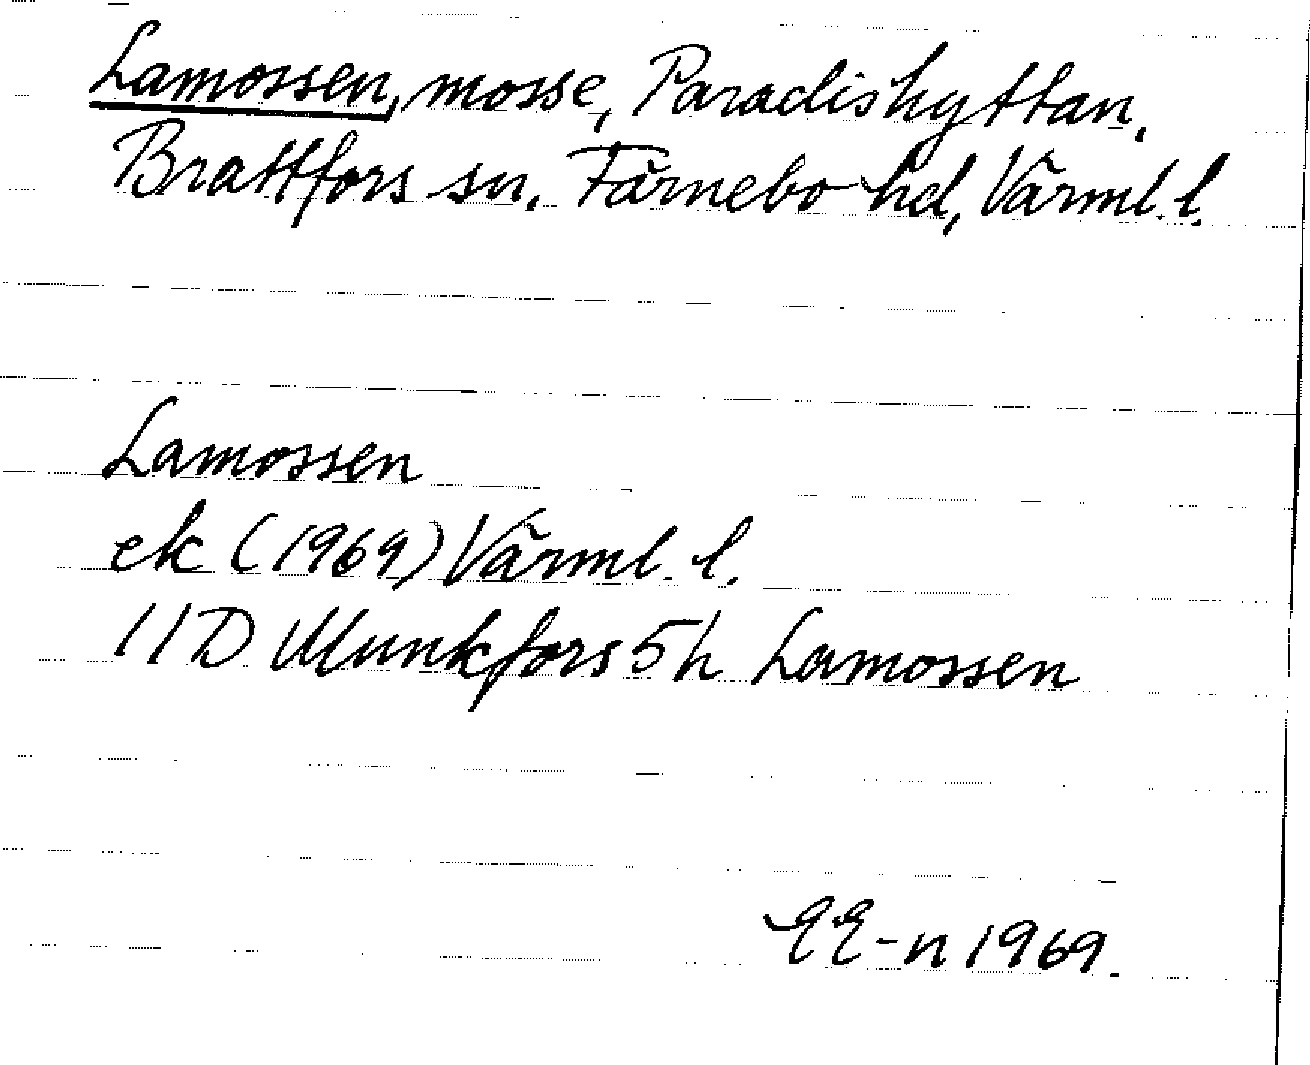 Lamossen, mosse, Paradishyttan,
Brattfors sn, Färnebo hd, Värml. l.
Lamossen
ek (1969) Värml. l.
11D Munkfors 5h Lamossen
EE-n 1969.